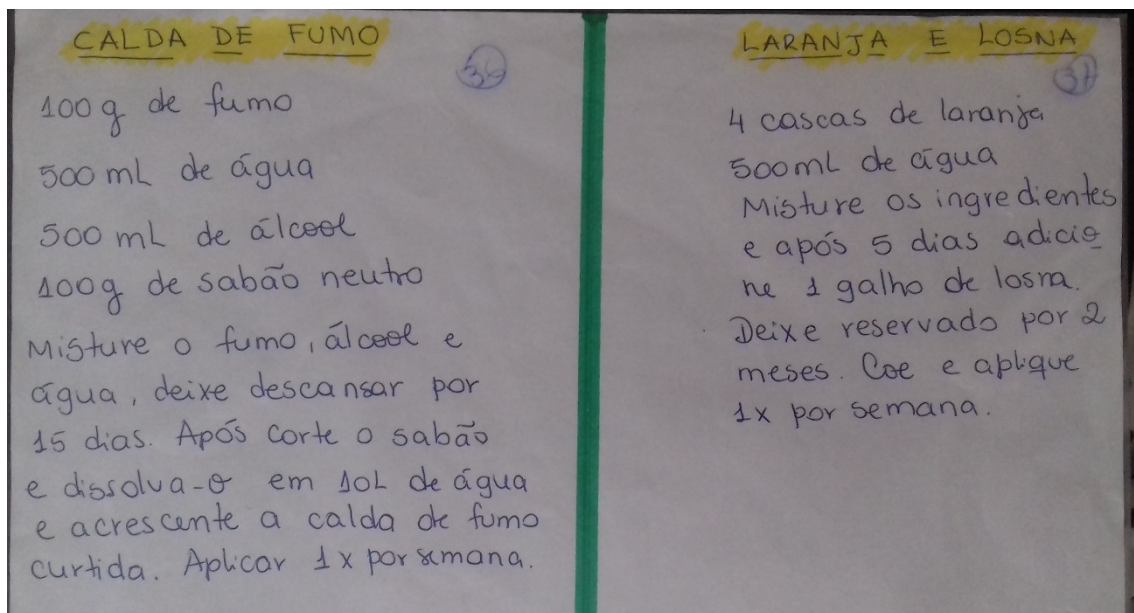 CALDA DE FUMO
36
100g de fumo
500 mL de água
500 mL de álcool
100g de sabão neutro
Misture o fumo, álcool e
água, deixe descansar por
15 dias. Após corte o sabão
e dissolva-o em 10L de água
e acrescente a calda de fumo
curtida. Aplicar 1x por semana.
LARANJA E LOSNA
37
4 cascas de laranja
500mL de água
Misture os ingredientes
e após 5 dias adicio
ne 1 galho de losna.
Deixe reservado por 2
meses. Coe e aplique
1x por semana.